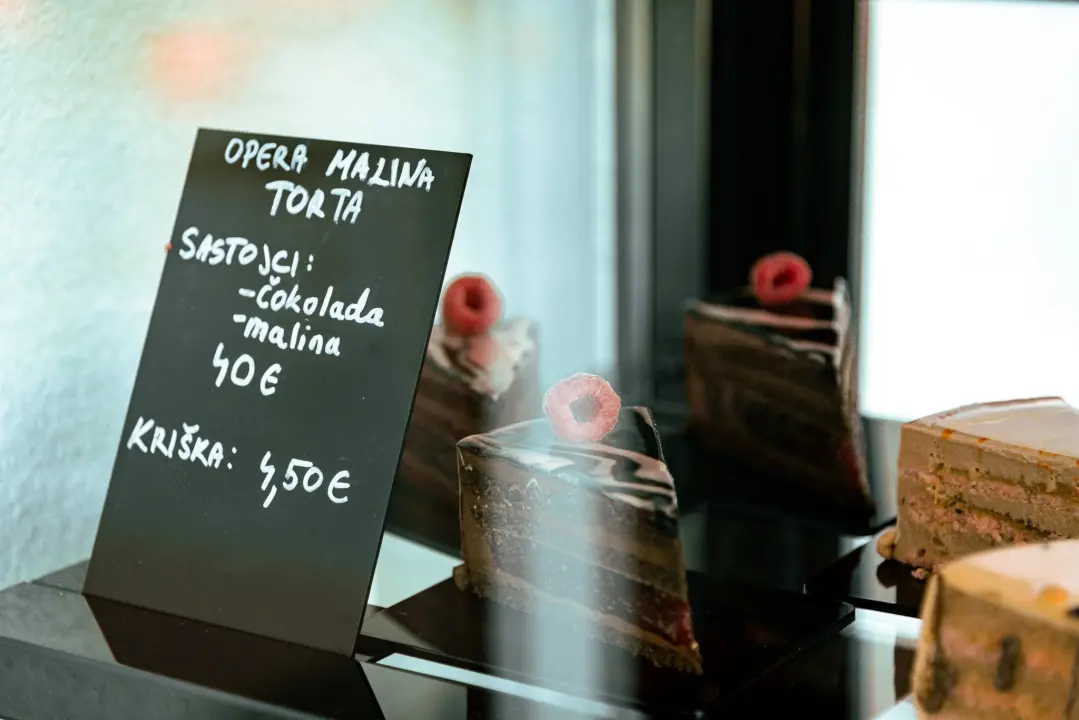 OPERA MALINA
TORTA
SASTOJCI:
-čokolada
-malina
40€
KRIŠKA: 4,50€